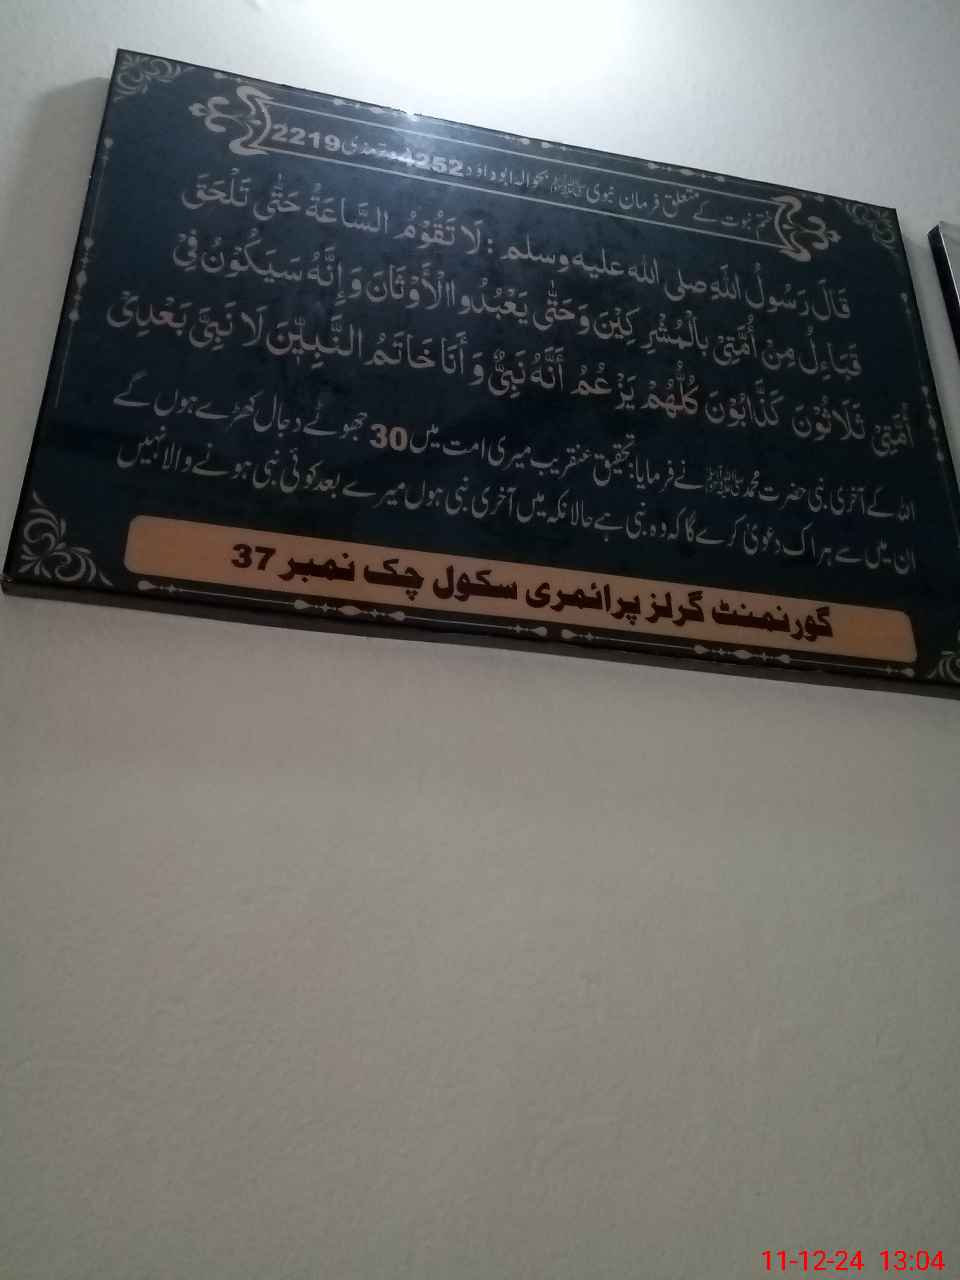 ختم نبوت کے متعلق فرمان نبوی ﷺ بحوالہ ابوداود 4252 ترمذی 2219
قَالَ رَسُولُ اللهِ صلى الله عليه وسلم : لَا تَقُوْمُ السَّاعَةُ حَتّٰى تَلْحَقَ
قَبَاءِلُ مِنْ أُمَّتِيْ بِالْمُشْرِكِيْنَ وَحَتّٰى يَعْبُدُوا الْأَوْثَانَ وَإِنَّهُ سَيَكُوْنُ فِيْ
أُمَّتِيْ ثَلَاثُوْنَ كَذَّابُوْنَ كُلُّهُمْ يَزْعُمُ أَنَّهُ نَبِيٌّ وَأَنَا خَاتَمُ النَّبِيِّيْنَ لَا نَبِيَّ بَعْدِيْ
اللہ کے آخری نبی حضرت محمد ﷺ نے فرمایا: تحقیق عنقریب میری امت میں 30 جھوٹے دجال کھڑے ہوں گے
ان میں سے ہر اک دعویٰ کرے گا کہ وہ نبی ہے حالانکہ میں آخری نبی ہوں میرے بعد کوئی نبی ہونے والا نہیں
گورنمنٹ گرلز پرائمری سکول چک نمبر 37
11-12-24 13:04